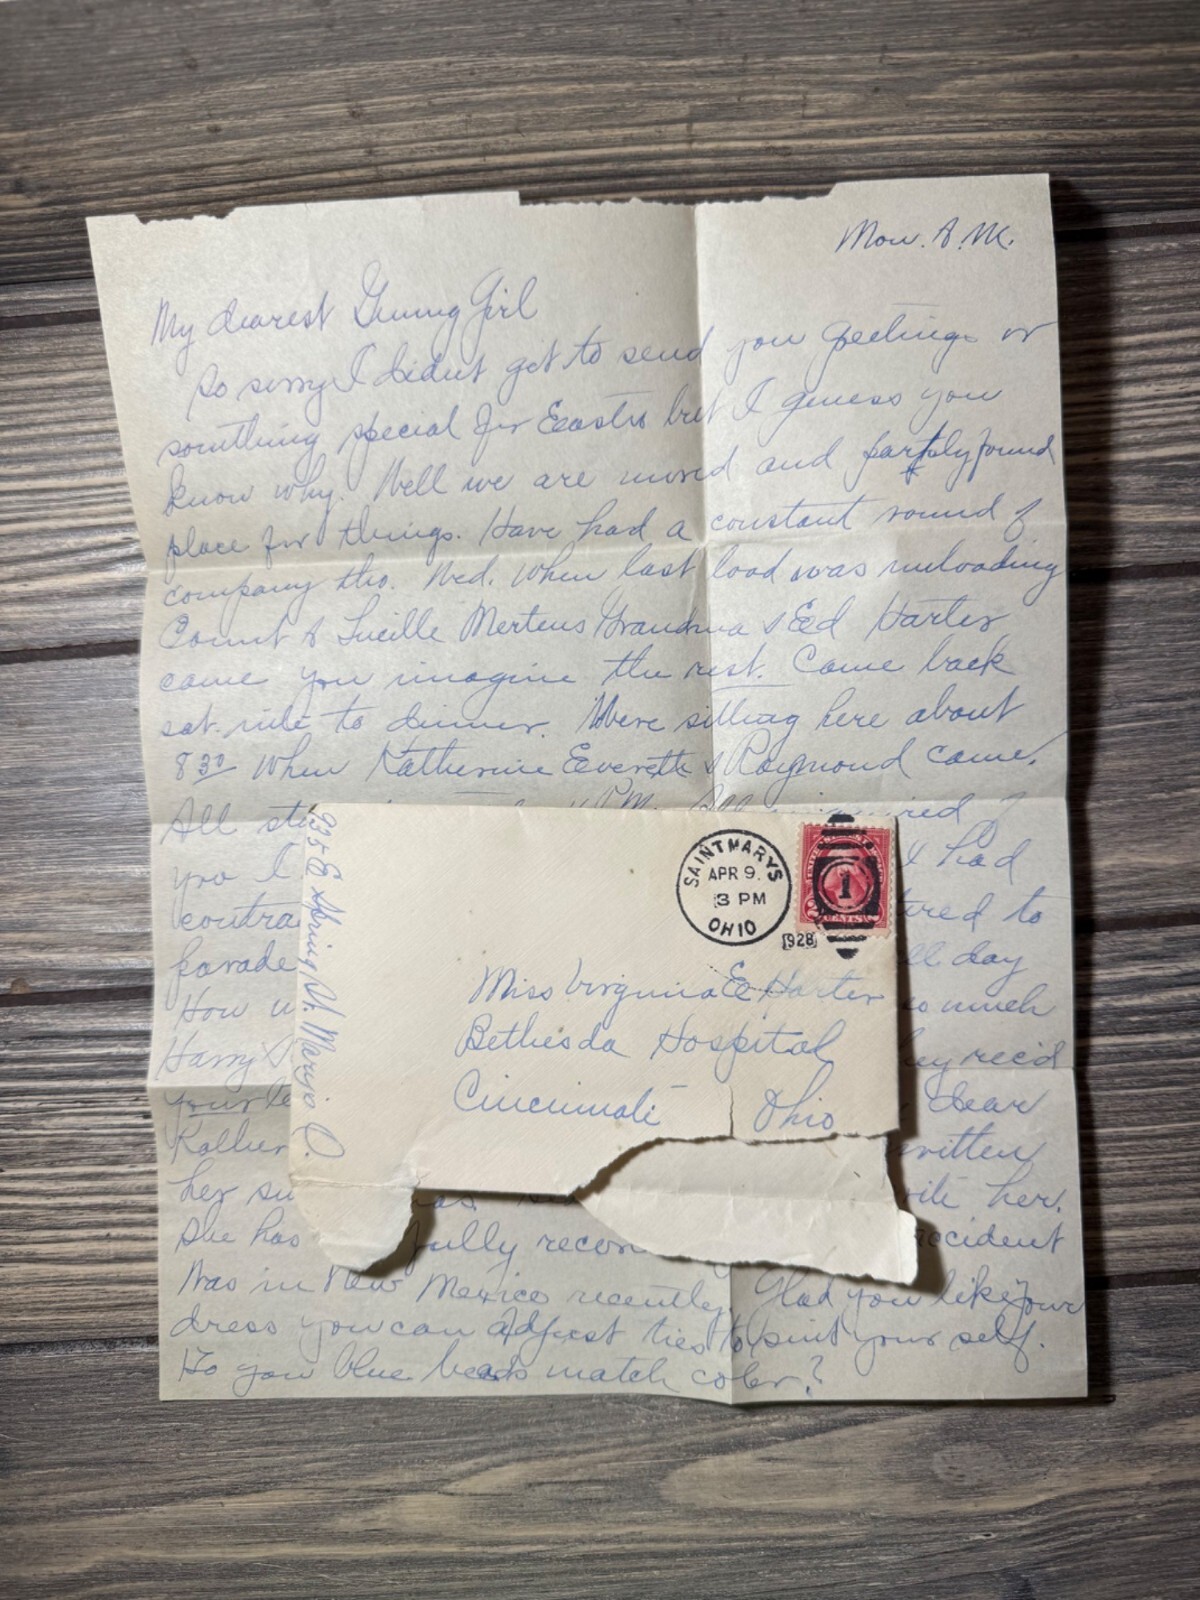 Mon. A.M.
My dearest Girl
So sorry I didnt get to send you greetings or
something special for Easter but I guess you
know why. Well we are moved and partly found
place for things. Have had a constant round of
company tho. Wed. when last load was unloading
Count & Lucille Mertens Grandma & Ed Harter
came you imagine the rest. Came back
sat. nite to dinner. Were sitting here about
8 30 when Katherine Everett & Raymond came.
All P.M. All
you I had
to
parade all day
How so much
Harry rec'd
your dear
written
her her.
She has fully accident
Was in New Mexico recently. Glad you like your
dress you can adjust ties to suit your self.
Do your blue beads match color?
935 E Spring St. Marys O.
SAINT MARYS
APR 9.
3 PM
OHIO
1928
1
2 CENTS 2
Miss Virginia E Harter
Bethesda Hospital
Cincinnati Ohio